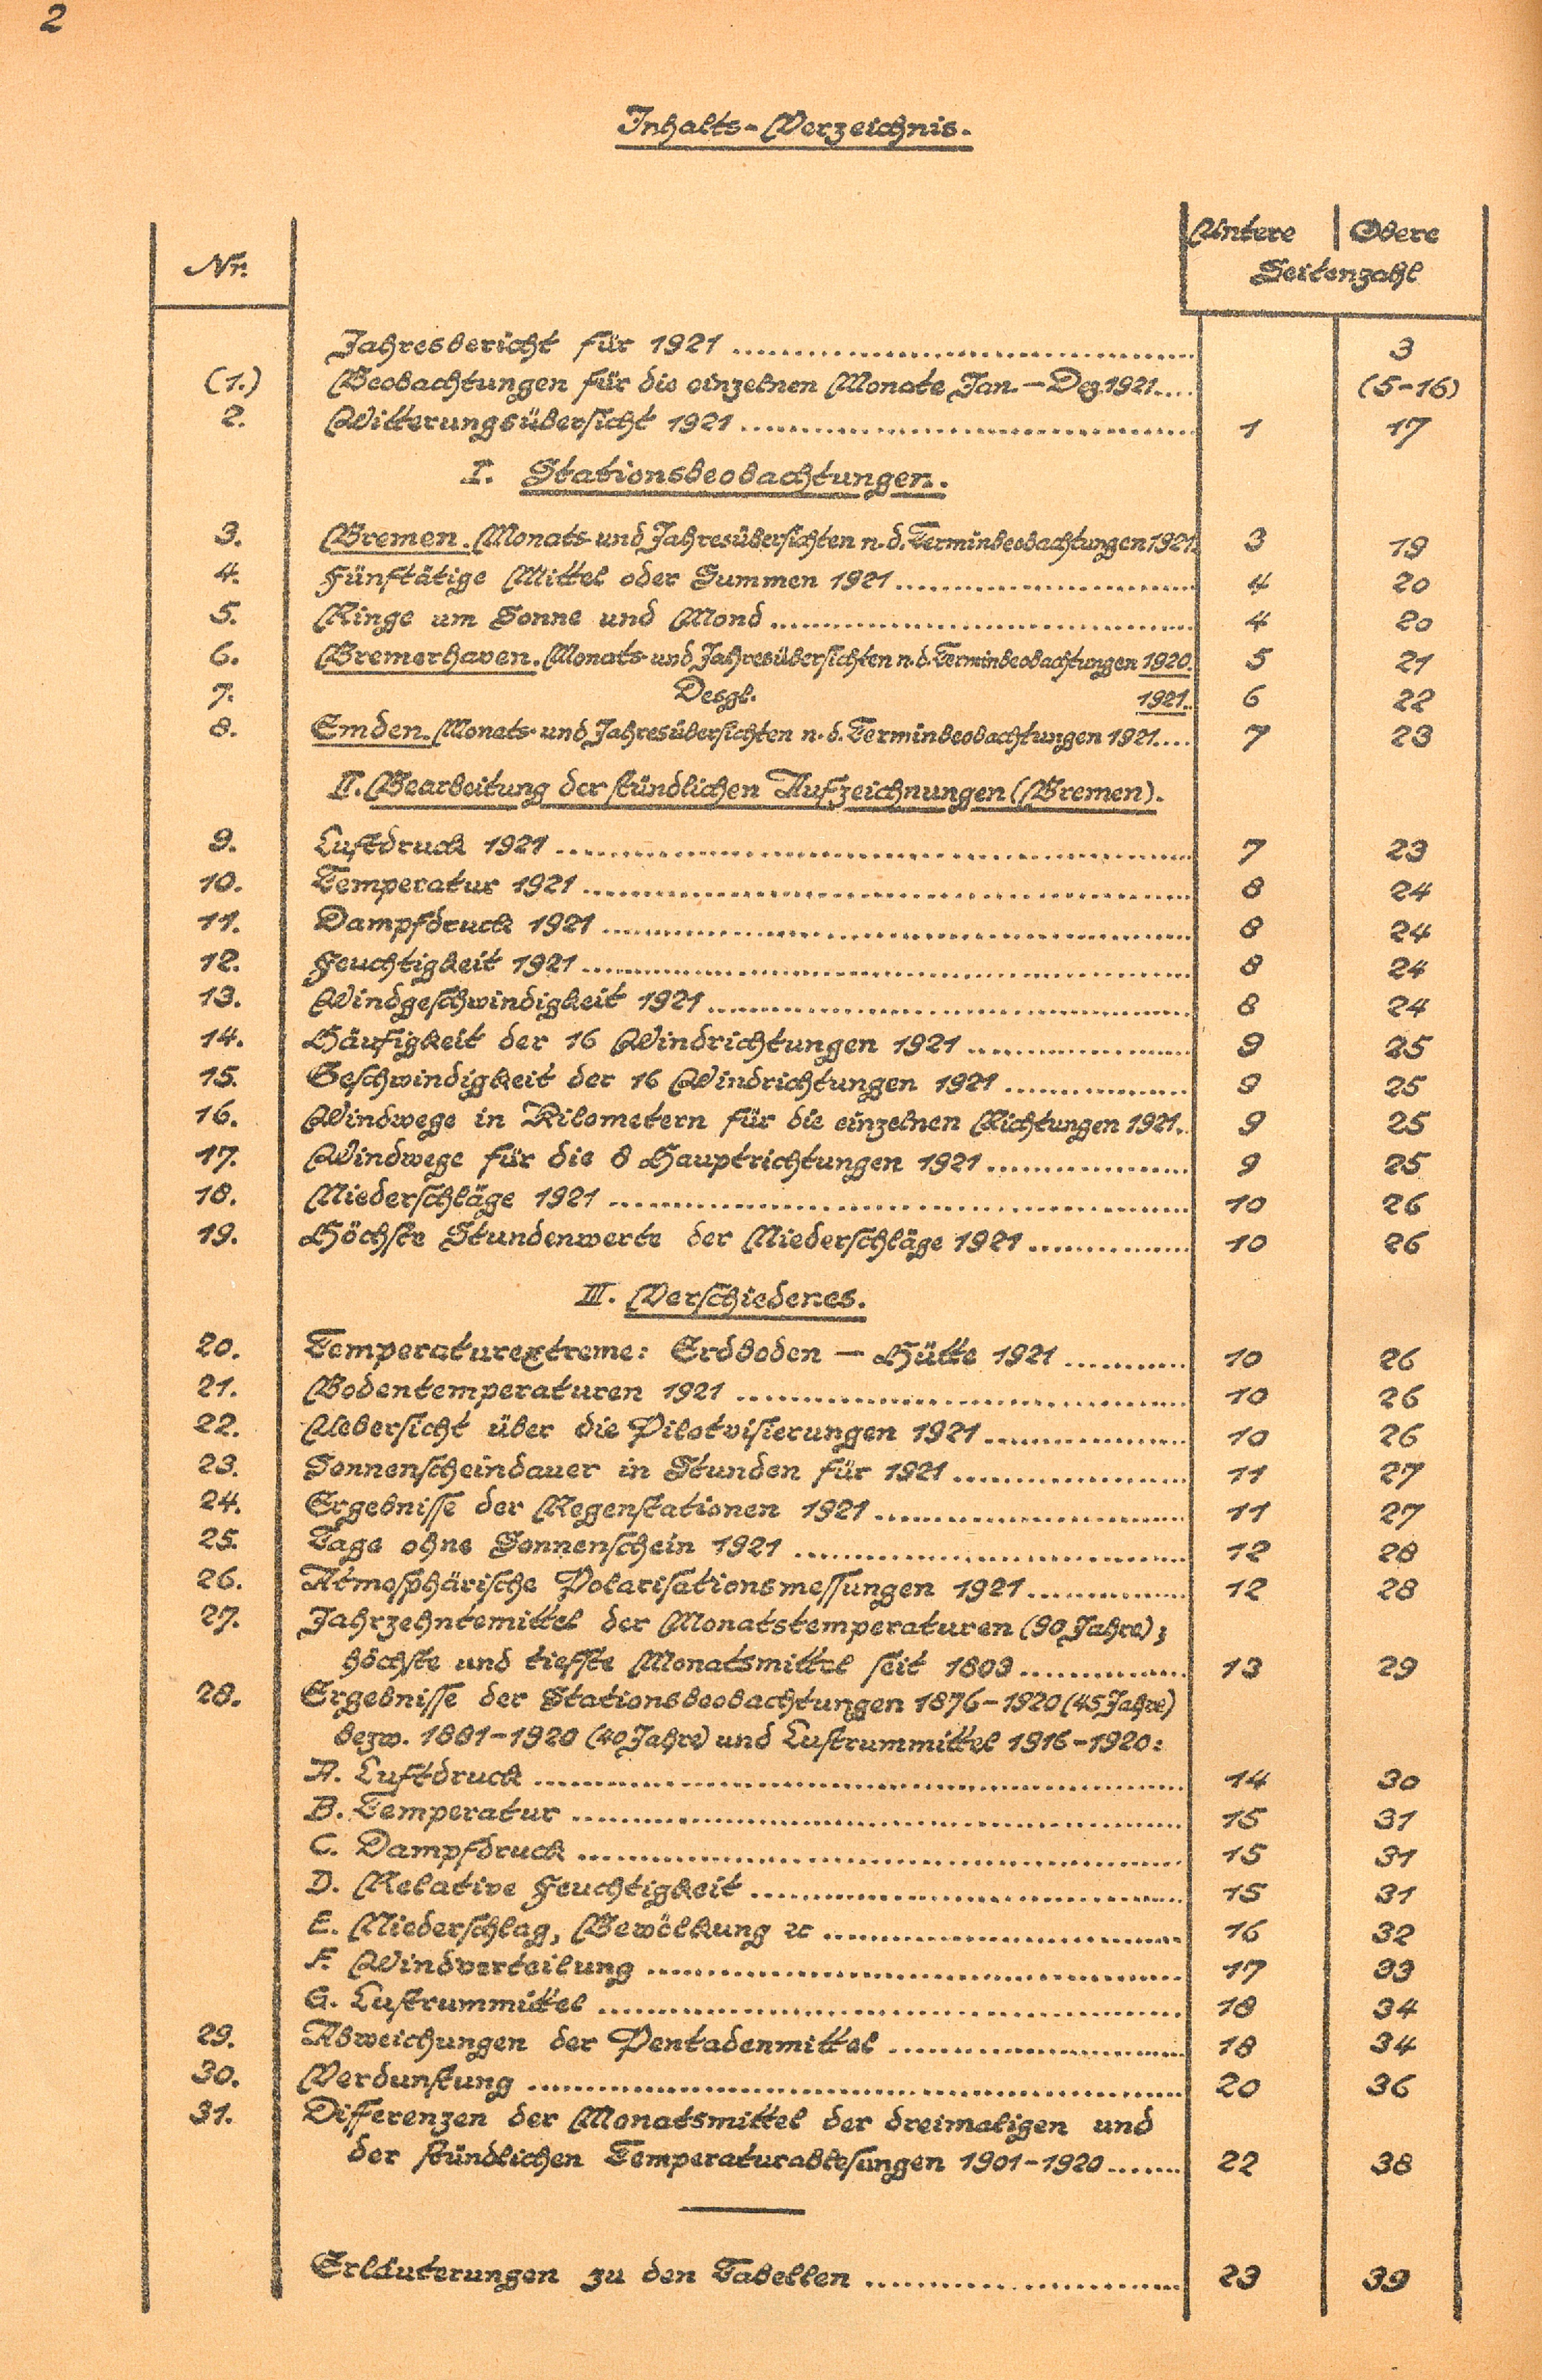 2
Inhalts-Verzeichnis.
Untere Obere
Nr. Seitenzahl
Jahresbericht für 1921 3
(1.) Beobachtungen für die einzelnen Monate Jan.–Dez. 1921 (5–16)
2. Witterungsübersicht 1921 1 17
I. Stationsbeobachtungen.
3. Bremen. Monats- und Jahresübersichten n. d. Terminbeobachtungen 1921. 3 19
4. Fünftätige Mittel oder Summen 1921 4 20
5. Ringe um Sonne und Mond 4 20
6. Bremerhaven. Monats- und Jahresübersichten n. d. Terminbeobachtungen 1920. 5 21
7. Desgl. 1921. 6 22
8. Emden. Monats- und Jahresübersichten n. d. Terminbeobachtungen 1921. 7 23
II. Bearbeitung der stündlichen Aufzeichnungen (Bremen).
9. Luftdruck 1921 7 23
10. Temperatur 1921 8 24
11. Dampfdruck 1921 8 24
12. Feuchtigkeit 1921 8 24
13. Windgeschwindigkeit 1921 8 24
14. Häufigkeit der 16 Windrichtungen 1921 9 25
15. Geschwindigkeit der 16 Windrichtungen 1921 9 25
16. Windwege in Kilometern für die einzelnen Richtungen 1921. 9 25
17. Windwege für die 8 Hauptrichtungen 1921 9 25
18. Niederschläge 1921 10 26
19. Höchste Stundenwerte der Niederschläge 1921 10 26
III. Verschiedenes.
20. Temperaturextreme: Erdboden – Hütte 1921 10 26
21. Bodentemperaturen 1921 10 26
22. Uebersicht über die Pilotvisierungen 1921 10 26
23. Sonnenscheindauer in Stunden für 1921 11 27
24. Ergebnisse der Regenstationen 1921 11 27
25. Tage ohne Sonnenschein 1921 12 28
26. Atmosphärische Polarisationsmessungen 1921 12 28
27. Jahrzehntemittel der Monatstemperaturen (90 Jahre);
höchste und tiefste Monatsmittel seit 1803 13 29
28. Ergebnisse der Stationsbeobachtungen 1876–1920 (45 Jahre)
bezw. 1881–1920 (40 Jahre) und Lustrummittel 1916–1920:
A. Luftdruck 14 30
B. Temperatur 15 31
C. Dampfdruck 15 31
D. Relative Feuchtigkeit 15 31
E. Niederschlag, Bewölkung ꝛc 16 32
F. Windverteilung 17 33
G. Lustrummittel 18 34
29. Abweichungen der Pentadenmittel 18 34
30. Verdunstung 20 36
31. Differenzen der Monatsmittel der dreimaligen und
der stündlichen Temperaturablesungen 1901–1920 22 38
Erläuterungen zu den Tabellen 23 39